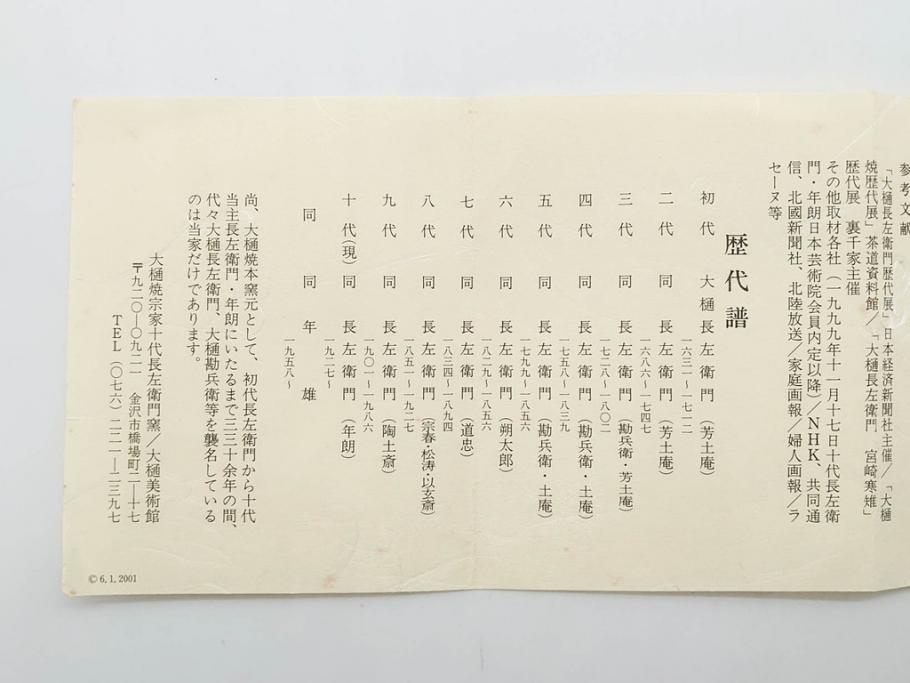 参考文献
「大樋長左衛門歴代展」日本経済新聞社主催/「大樋
焼歴代展」茶道資料館/「大樋長左衛門、宮崎寒雉」
歴代展 裏千家主催
その他取材各社(一九九九年十一月十七日十代長左衛
門・年朗日本芸術院会員内定以降)/NHK、共同通
信、北國新聞社、北陸放送/家庭画報/婦人画報/ラ
セーヌ等
歴代譜
初代 大樋長左衛門(芳土庵)
一六三一~一七一二
二代 同 長左衛門(芳土庵)
一六八六~一七四七
三代 同 長左衛門(勘兵衛・芳土庵)
一七二八~一八〇二
四代 同 長左衛門(勘兵衛・土庵)
一七五八~一八三九
五代 同 長左衛門(勘兵衛・土庵)
一七九九~一八五六
六代 同 長左衛門(朔太郎)
一八二九~一八五六
七代 同 長左衛門(道忠)
一八三四~一八九四
八代 同 長左衛門(宗春・松涛・以玄斎)
一八五一~一九二七
九代 同 長左衛門(陶土斎)
一九〇一~一九八六
十代(現) 同 長左衛門(年朗)
一九二七~
同 同 年雄
一九五八~
尚、大樋焼本窯元として、初代長左衛門から十代
当主長左衛門・年朗にいたるまで三三十余年の間、
代々大樋長左衛門、大樋勘兵衛等を襲名している
のは当家だけであります。
大樋焼宗家十代長左衛門窯/大樋美術館
〒九二〇-〇九一一 金沢市橋場町二-十七
TEL(〇七六)二二一-二三九七
© 6. 1. 2001